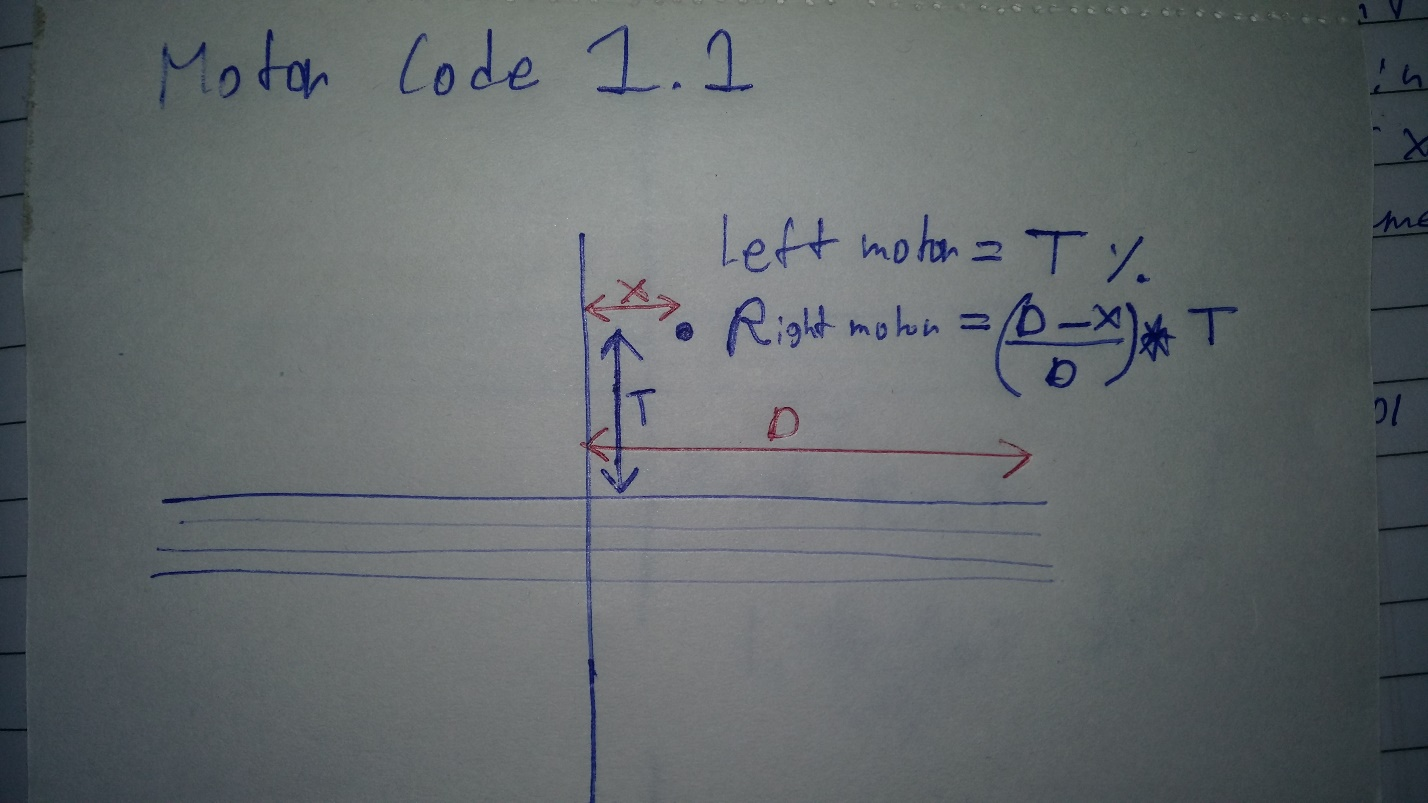 Motor Code 1.1
Left motor = T %
X
Right motor = (D - X / D) * T
T
D